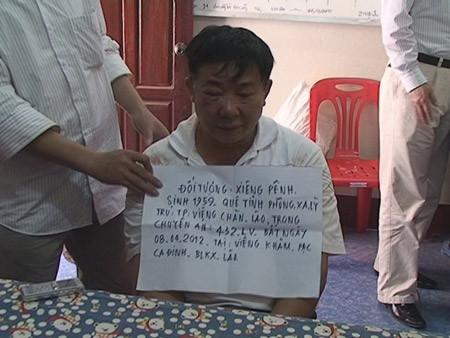 ĐỐI TƯỢNG: XIÊNG PÊNH.
SINH 1959. QUÊ TỈNH PHÔNG.XA.LỲ
TRÚ: TP. VIÊNG CHĂN. LÀO. TRONG
CHUYÊN ÁN: 432.LV. BẮT NGÀY
08.04.2012. TẠI: VIÊNG KHĂM.
CA ĐINH. BLKX. LÀO.